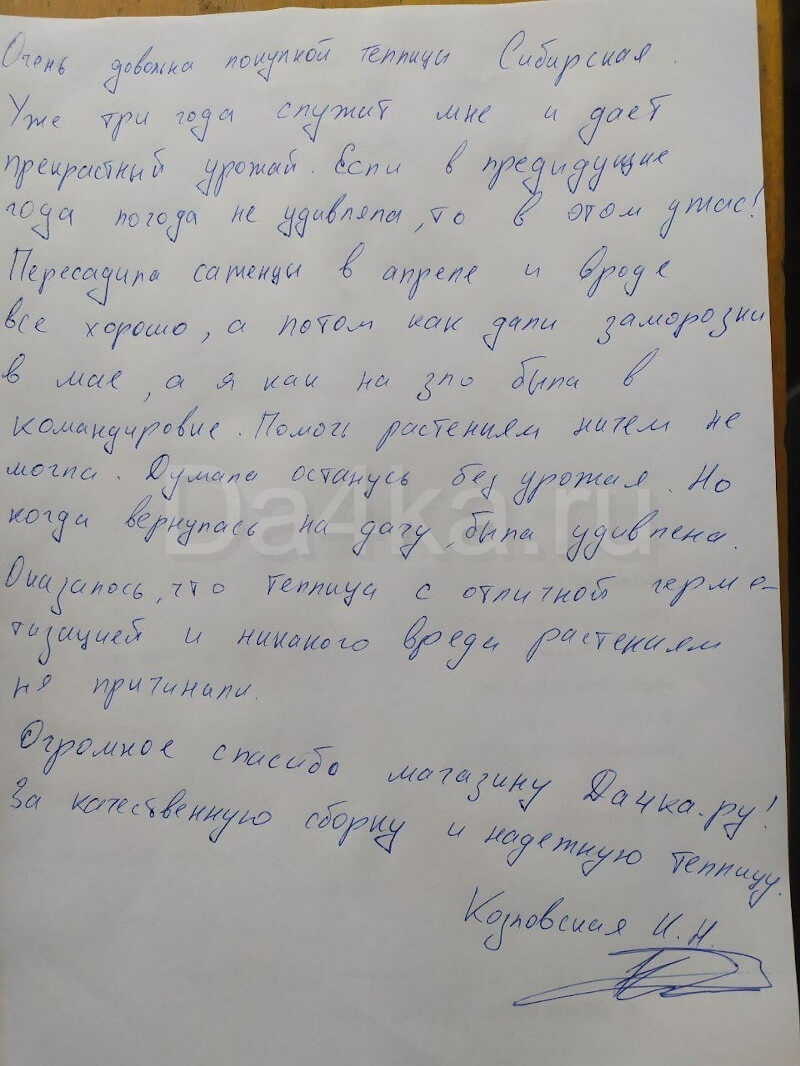 Очень довольна покупкой теплицы Сибирская.
Уже три года служит мне и дает
прекрастный урожай. Если в предидущие
года погода не удивляла, то в этом ужас!
Пересадила саженцы в апреле и вроде
все хорошо, а потом как дали заморозки
в мае, а я как на зло была в
командировке. Помочь растениям ничем не
могла. Думала останусь без урожая. Но
когда вернулась на дачу, была удивлена.
Оказалось, что теплица с отличной герме-
тизацией и никакого вреда растениям
не причинили.
Огромное спасибо магазину Da4ка.ру!
За качественную сборку и надежную теплицу.
Козловская И.Н.
Da4ka.ru